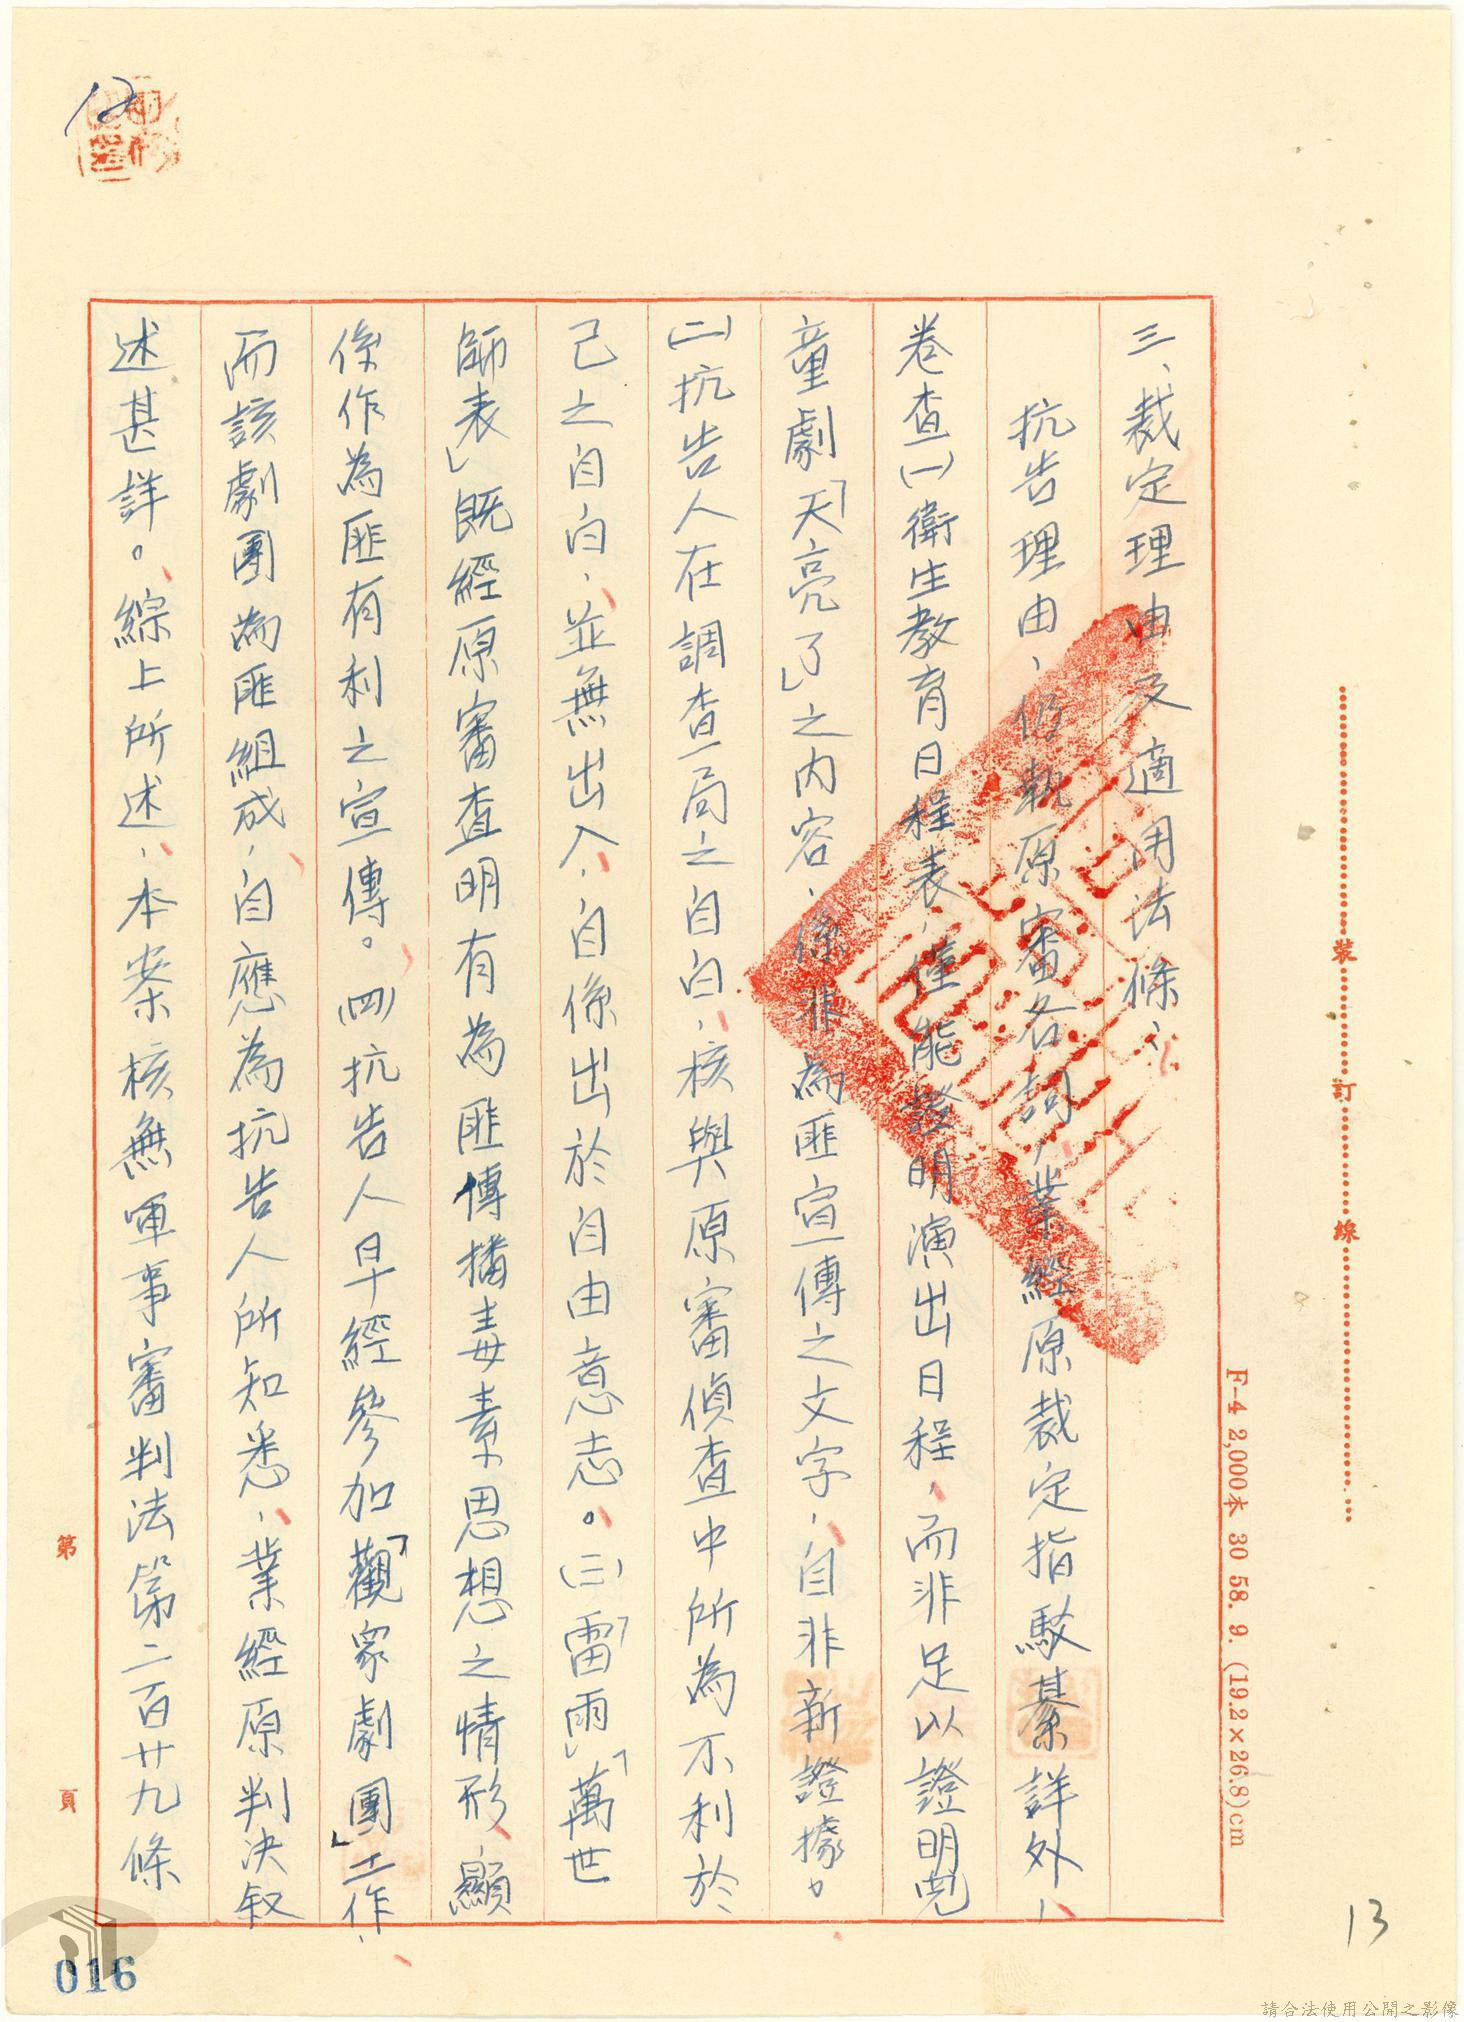 三、裁定理由及適用法條、
抗告理由、仍執原審各詞，業經原裁定指駁綦詳外，
卷查(一)衛生教育日程表，僅能證明演出日程，而非足以證明兒
童劇「天亮了」之內容，係非為匪宣傳之文字，自非新證據。
(二)抗告人在調查局之自白，核與原審偵查中所為不利於
己之自白，並無出入，自係出於自由意志。(三)「雷雨」「萬世
師表」既經原審查明有為匪傳播毒素思想之情形，顯
係作為匪有利之宣傳。(四)抗告人早經參加「觀眾劇團」工作，
而該劇團為匪組成，自應為抗告人所知悉，業經原判決敘
述甚詳。綜上所述，本案核無軍事審判法第二百廿九條
裝
訂
線
F-4 2,000本 30 58. 9. (19.2×26.8)cm
第
頁
12
13
016
請合法使用公開之影像